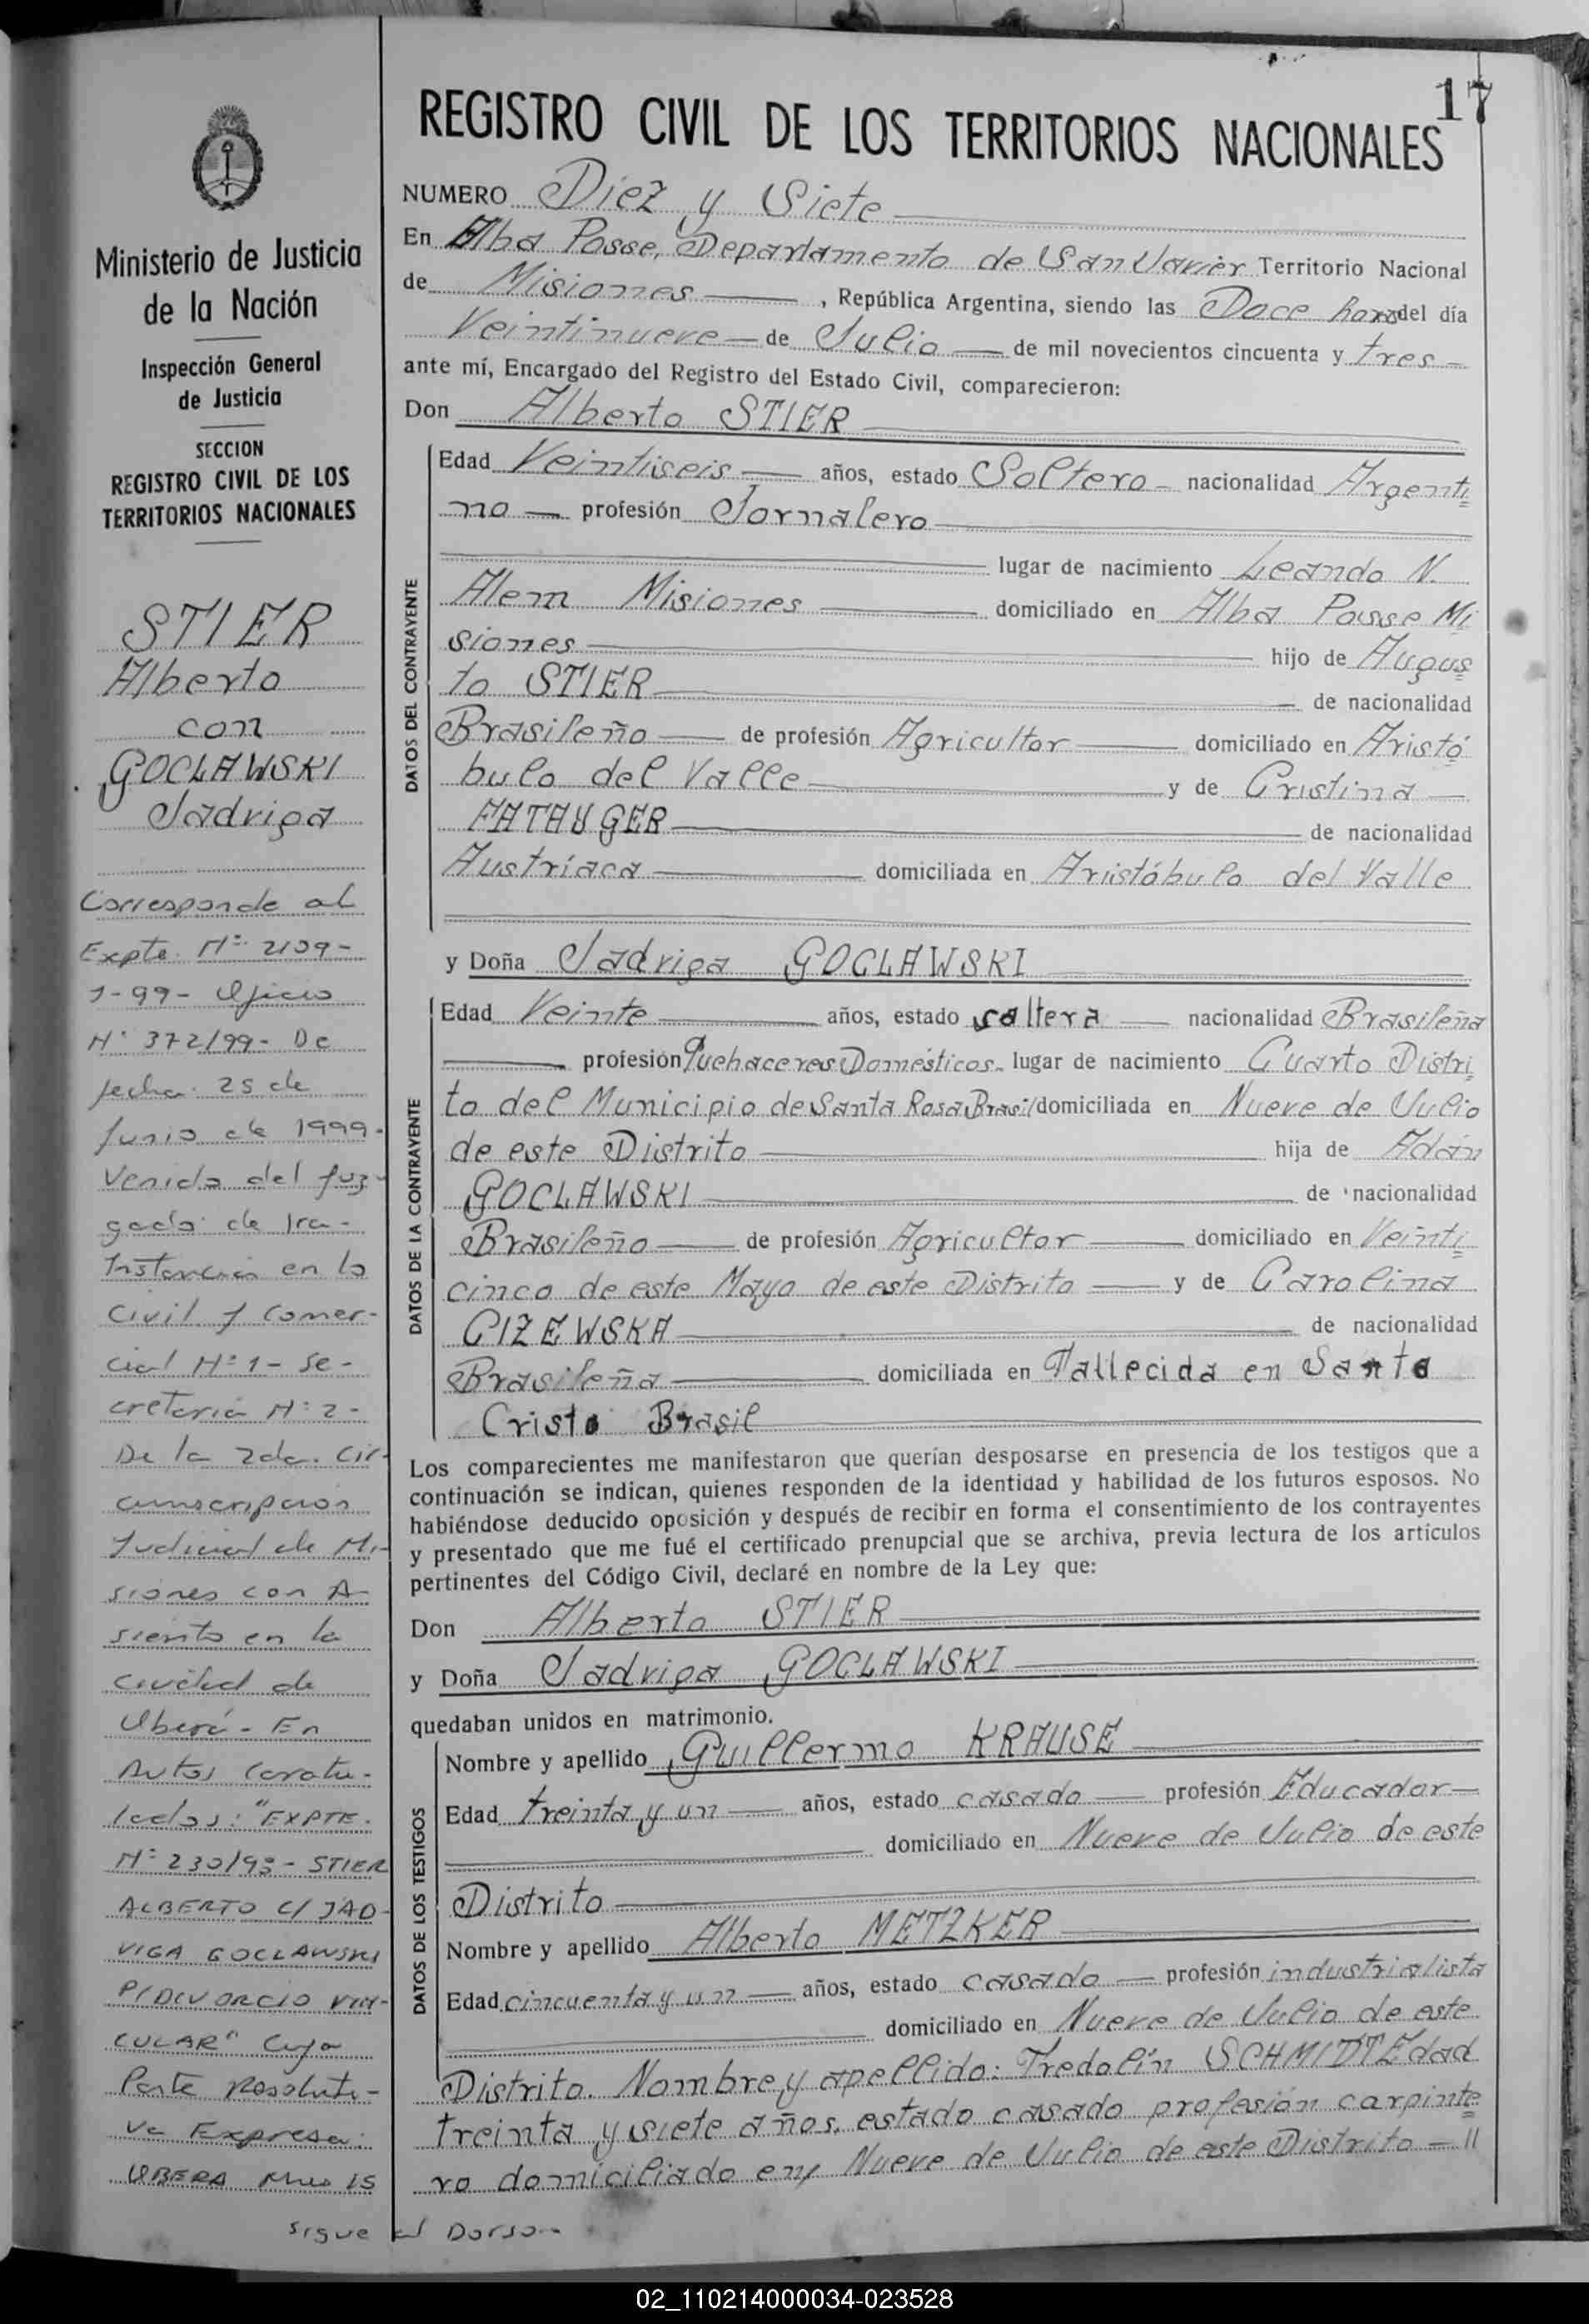 17
REGISTRO CIVIL DE LOS TERRITORIOS NACIONALES
Ministerio de Justicia
de la Nación
Inspección General
de Justicia
SECCION
REGISTRO CIVIL DE LOS
TERRITORIOS NACIONALES
STIER
Alberto
con
GOCLAWSKI
Jadviga
Corresponde al
Expte. Nº 2109-
1-99- Oficio
Nº 372/99- De
fecha: 25 de
Junio de 1999-
Venido del Juz-
gado de 1ra-
Instancia en lo
Civil y Comer-
cial Nº 1- Se-
cretaria Nº 2-
De la 2da. Cir-
cunscripcion
Judicial de Mi-
siones con A-
siento en la
ciudad de
Oberá- En
Autos Caratu-
lados: "EXPTE.
Nº 230/93- STIER
ALBERTO C/ JAD-
VIGA GOCLAWSKI
P/DIVORCIO VIN-
CULAR" Cuya
Parte Resoluti-
va Expresa:
OBERA 15
Sigue al Dorso-
NUMERO Diez y Siete
En Alba Posse, Departamento de San Javier Territorio Nacional
de Misiones , República Argentina, siendo las Doce horas del día
Veintinueve de Julio de mil novecientos cincuenta y tres
ante mí, Encargado del Registro del Estado Civil, comparecieron:
Don Alberto STIER
DATOS DEL CONTRAYENTE
Edad Veintiseis años, estado Soltero nacionalidad Argenti
no profesión Jornalero
lugar de nacimiento Leando N.
Alem Misiones domiciliado en Alba Posse Mi
siones hijo de Augus
to STIER de nacionalidad
Brasileño de profesión Agricultor domiciliado en Aristó
bulo del Valle y de Cristina
FATAUGER de nacionalidad
Austríaca domiciliada en Aristóbulo del Valle
y Doña Jadviga GOCLAWSKI
DATOS DE LA CONTRAYENTE
Edad Veinte años, estado soltera nacionalidad Brasileña
profesión Quehaceres Domésticos lugar de nacimiento Cuarto Distri
to del Municipio de Santa Rosa Brasil domiciliada en Nueve de Julio
de este Distrito hija de Adán
GOCLAWSKI de nacionalidad
Brasileño de profesión Agricultor domiciliado en Veinti
cinco de este Mayo de este Distrito y de Carolina
CIZEWSKA de nacionalidad
Brasileña domiciliada en Fallecida en Santo
Cristo Brasil
Los comparecientes me manifestaron que querían desposarse en presencia de los testigos que a
continuación se indican, quienes responden de la identidad y habilidad de los futuros esposos. No
habiéndose deducido oposición y después de recibir en forma el consentimiento de los contrayentes
y presentado que me fué el certificado prenupcial que se archiva, previa lectura de los artículos
pertinentes del Código Civil, declaré en nombre de la Ley que:
Don Alberto STIER
y Doña Jadviga GOCLAWSKI
quedaban unidos en matrimonio.
DATOS DE LOS TESTIGOS
Nombre y apellido Guillermo KRAUSE
Edad treinta y un años, estado casado profesión Educador
domiciliado en Nueve de Julio de este
Distrito
Nombre y apellido Alberto METZKER
Edad cincuenta y un años, estado casado profesión industrialista
domiciliado en Nueve de Julio de este
Distrito. Nombre y apellido: Fredolín SCHMIDT Edad
treinta y siete años. estado casado profesión carpinte
ro domiciliado en Nueve de Julio de este Distrito
02_110214000034-023528